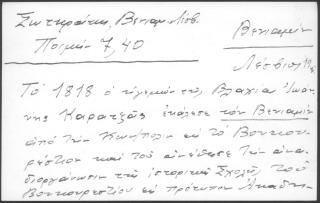 Σωτηράκη, Βενιαμ. Λέσβ.
Ποιμήν 7, 40
Βενιαμίν
Λέσβιος
Τὸ 1818 ὁ ἡγεμὼν τῆς Βλαχίας Ἰωάν-
νης Καρατζᾶς ἐκάλεσε τὸν Βενιαμίν
ἀπὸ τὴν Κων/πολιν εἰς τὸ Βουκου-
ρέστιον καὶ τοῦ ἀνέθεσε τὴν ἀνα-
διοργάνωσιν τῆς ἱστορικῆς Σχολῆς τοῦ
Βουκουρεστίου εἰς πρότυπον Ἀκαδη-